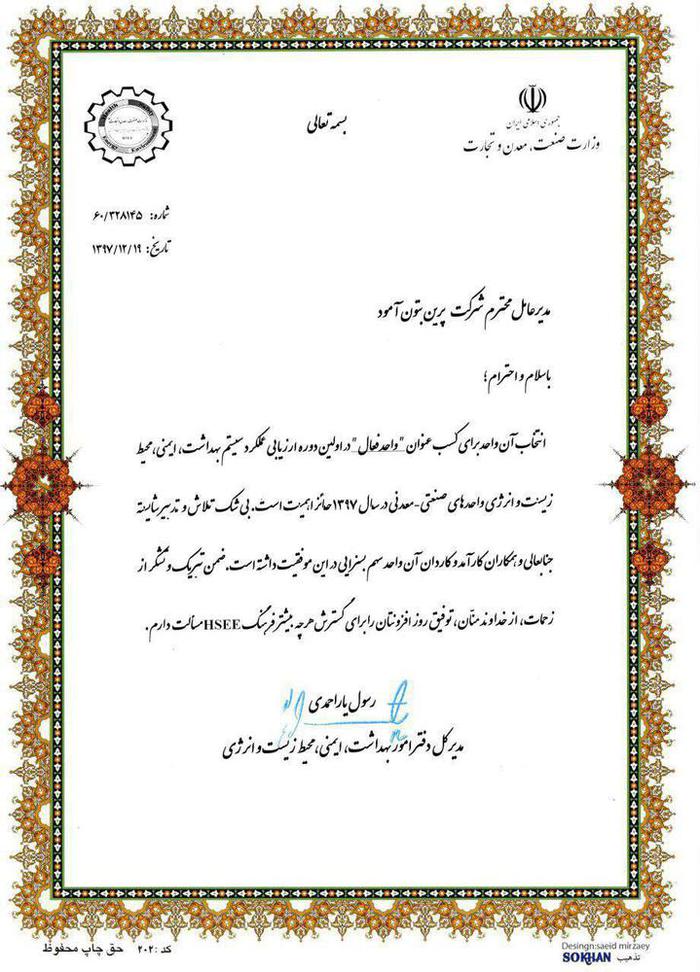 جمهوری اسلامی ایران
وزارت صنعت، معدن و تجارت
بسمه تعالی
شماره: ۶۰/۳۲۸۱۴۵
تاریخ: ۱۳۹۷/۱۲/۱۹
مدیرعامل محترم شرکت پرین بتون آمود
باسلام و احترام؛
انتخاب آن واحد برای کسب عنوان "واحد فعال" در اولین دوره ارزیابی عملکرد سیستم بهداشت، ایمنی، محیط
زیست و انرژی واحدهای صنعتی-معدنی در سال ۱۳۹۷ حائز اهمیت است. بی شک تلاش و تدبیر شایسته
جنابعالی و همکاران کارآمد و کاردان آن واحد سهم بسزایی در این موفقیت داشته است. ضمن تبریک و تشکر از
زحمات، از خداوند منّان، توفیق روز افزونتان را برای گسترش هرچه بیشتر فرهنگ HSEE مسألت دارم.
رسول یاراحمدی
مدیرکل دفتر امور بهداشت، ایمنی، محیط زیست و انرژی
کد :۲۰۲ حق چاپ محفوظ
Desingn:saeid mirzaey
تذهیب SOKHAN